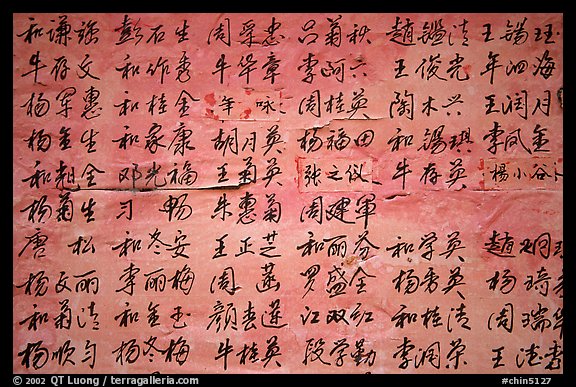 和谦强 彭石生 周采忠 吕菊秋 赵鑑清 王锡珏
牛存文 和作秀 牛华章 李阿六 王俊光 年泗海
杨军惠 和桂金 年咏 周桂英 陶木兴 王润月
杨金生 和家康 胡月英 杨福田 和锡琪 李凤金
和超全 邓光福 王菊英 张之仪 牛存英 楊小谷
杨菊生 习畅 朱惠菊 周建军
唐松 和冬安 王正芝 和丽芬 和学英 赵
杨文丽 李丽梅 周莲 罗盛全 杨秀英 杨琦
和菊清 和金玉 颜世莲 江双红 和桂清 周瑞华
杨顺匀 杨冬梅 牛桂英 段学勤 李润荣 王德
© 2002 QT Luong / terragalleria.com #chin5127